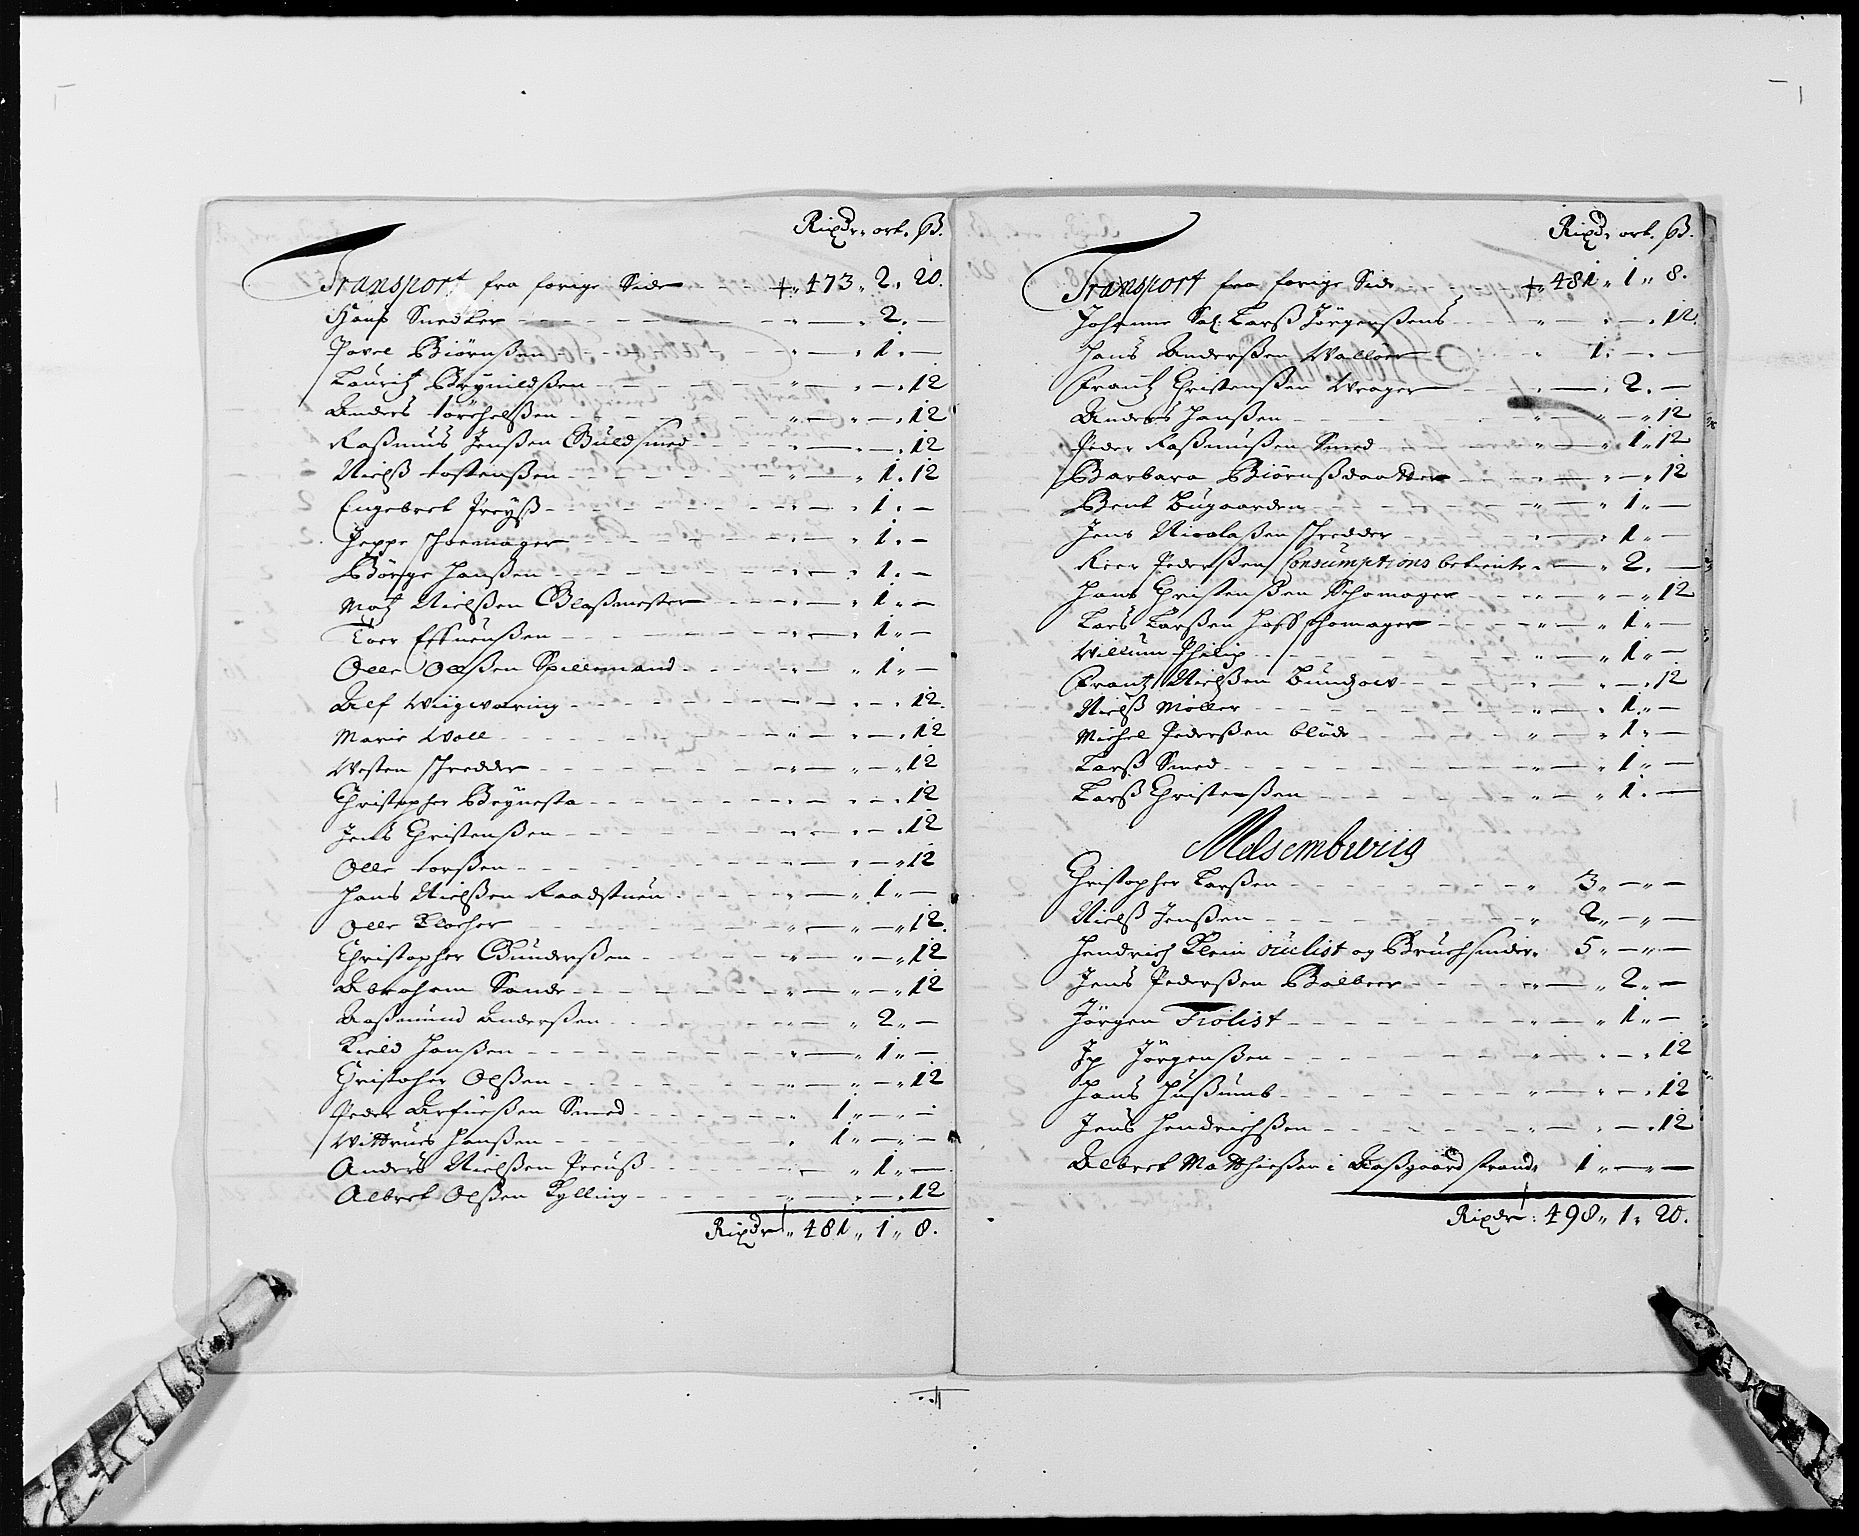 Rixdr. ort. ß.
Transport fra forige Side - - - 473 „ 2 „ 20.
Hans Snedker - - - „ — „ 2 „ —
Povel Biörnßen - - - „ — „ 1 „ —
Lauritz Brynildßen - - - „ — „ — „ 12
Anders torchelßen - - - „ — „ — „ 12
Raßmus Jenßen Guldsmed - - - „ — „ — „ 12
Nielß tostenßen - - - „ — „ 1 „ 12
Engebret Preyß - - - „ — „ 1 „ —
Jeppe schoemager - - - „ — „ 1 „ —
Börge Hanßen - - - „ — „ 1 „ —
Matz Nielßen Glaßmester - - - „ — „ 1 „ —
Toer Effueußen - - - „ — „ 1 „ —
Olle Olßen Spillemand - - - „ — „ 1 „ —
Alf Wiigværing - - - „ — „ — „ 12
Marie Woll - - - „ — „ — „ 12
Westen schredder - - - „ — „ — „ 12
Christopher Brynesta - - - „ — „ — „ 12
Jens Christenßen - - - „ — „ — „ 12
Olle torßen - - - „ — „ — „ 12
Hans Nielßen Raadstuen - - - „ — „ 1 „ —
Olle Klocher - - - „ — „ — „ 12
Christopher Gunderßen - - - „ — „ — „ 12
Abraham Sande - - - „ — „ — „ 12
Aaßmund Anderßen - - - „ — „ 2 „ —
Kield Hanßen - - - „ — „ 1 „ —
Christopher Olßen - - - „ — „ — „ 12
Peder Arfueßen Smed - - - „ 1 „ — „ —
Wittrues Hanßen - - - „ 1 „ — „ —
Anders Nielßen Preuß - - - „ — „ 1 „ —
Albret Olßen Kylling - - - „ — „ — „ 12
Rixdr „ 481 „ 1 „ 8.
Rixdr. ort. ß.
Transport fra forige Side - - - 481 „ 1 „ 8.
Johanne Sal: Larß Jörgenßens - - - „ — „ — „ 12
Hans Anderßen Walløer - - - „ 1 „ — „ —
Frantz Christenßen Wrager - - - „ — „ 2 „ —
Anders Hanßen - - - „ — „ — „ 12
Peder Raßmußen Smed - - - „ — „ 1 „ 12
Barbara Biörnßdaatter - - - „ — „ — „ 12
Bent Bugaarden - - - „ — „ 1 „ —
Jens Nicolaßen schredder - - - „ — „ 1 „ —
Rier Pederßen Consumptions betiente „ — „ 2 „ —
Hans Christenßen Schomager - - - „ — „ — „ 12
Lars Larßen Hoff schomager - - - „ — „ 1 „ —
Willum Philip - - - „ — „ 1 „ —
Frantz Nielßen - - - „ — „ — „ 12
Nielß Møller - - - „ — „ 1 „ —
Michel Pederßen bløde - - - „ — „ 1 „ —
Larß Smed - - - „ — „ 1 „ —
Larß Christenßen - - - „ — „ 1 „ —
Melsembwiig
Christopher Larßen - - - „ 3 „ — „ —
Nielß Jenßen - - - „ 2 „ — „ —
Hendrich Klein oculist og Bruchsnider „ 5 „ — „ —
Jens Pederßen Balbeer - - - „ — „ 2 „ —
Jörgen Fiolist - - - „ — „ 1 „ —
Jp Jörgenßen - - - „ — „ — „ 12
Hans Hußumb - - - „ — „ — „ 12
Jens Hendrichßen - - - „ — „ — „ 12
Albret Matthießen i Aaßgaard strand „ 1 „ — „ —
Rixdr : 498 „ 1 „ 20.